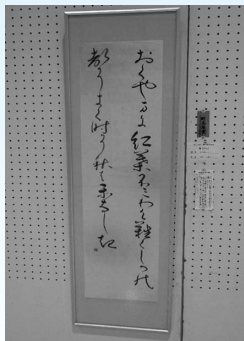 おくやまに紅葉ふみわけ鳴くしかの
声きく時そ秋はかなしき